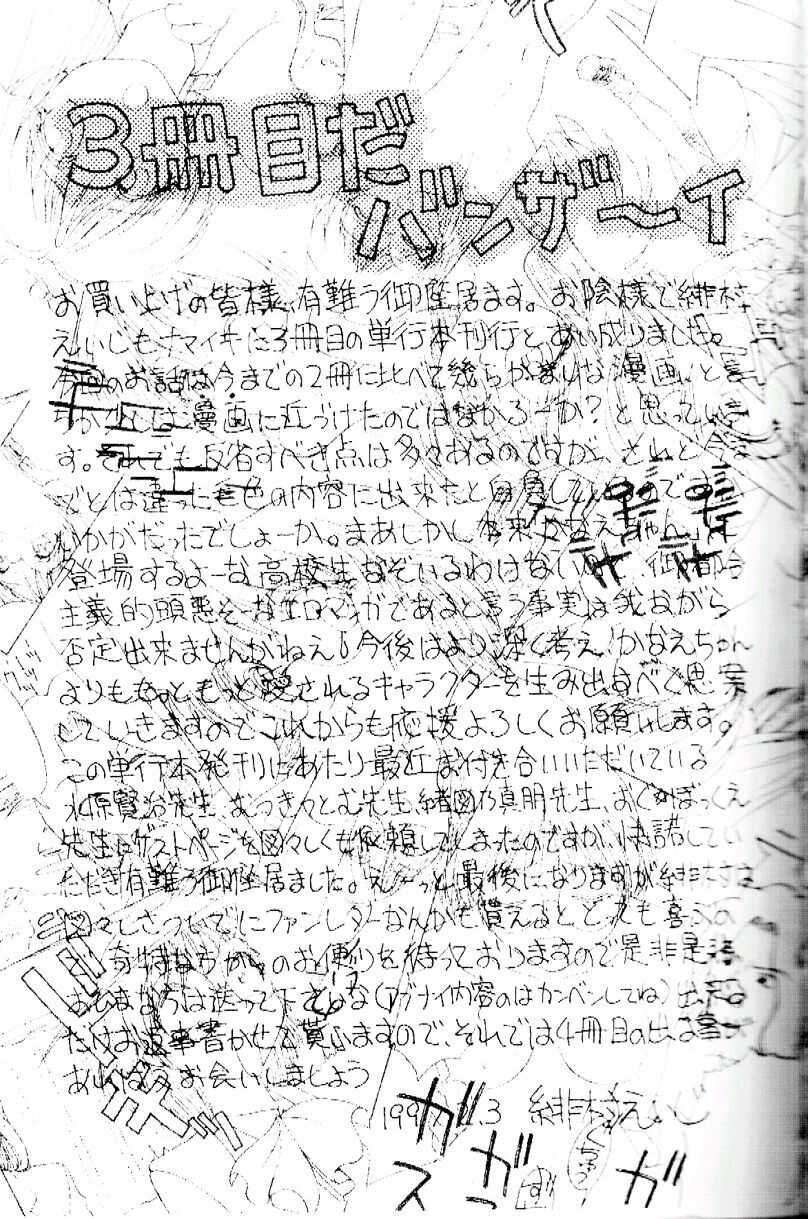 3冊目だ
バンザ～イ
お買い上げの皆様、有難う御座居ます。お陰様で緋村
えいじもナマイキに3冊目の単行本刊行とあい成りました。
のお話は今までの2冊に比べて幾らかましな漫画、と言
漫画に近づけたのではなかろーか?と思っていま
す。それでも反省すべき点は多々あるのですが、されど今ま
でとは違った色の内容に出来たと自負している
いかがだったでしょーか。まあしかし本来かなえちゃんに
登場するよーな高校生なぞいるわけない 御都合
主義的頭悪そーなエロマンガであると言う事実は我ながら
否定出来ませんがねえ。今後はより深く考え!かなえちゃん
よりももっともっと愛されるキャラクターを生み出すべく思案
していきますのでこれからも応援よろしくお願いします。
この単行本発刊にあたり最近お付き合いいただいている
水原賢治先生、むつきつとむ先生、緒図乃真朋先生、おぐぼっくえ
先生にゲストページを図々しくも依頼してしまったのですが、快諾してい
ただき有難う御座居ました。え～っと最後になりますが緋村は
図々しさついでにファンレターなんかも貰えるととても喜ぶの
で奇特な方からのお便りを待っておりますので是非是非
おひまな方は送って下さいな(アブナイ内容のはカンベンしてね)出来る
だけお返事書かせて貰いますので、それでは4冊目の出る事が
あればまたお会いしましょう
199 .3 緋村えいじ
ガ
ガ
ス
ガ
くちゅっ